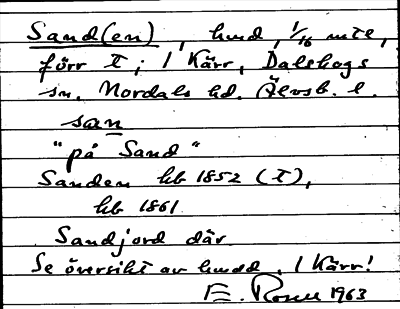 Sand(en), hmd, 1/16 mtl,
förr T; I Kärr, Dalskogs
sn. Nordals hd. Älvsb. l.
san
"på Sand"
Sanden hb 1852 (T),
hb 1861
Sandjord där.
Se översikt av hmdd. I Kärr!
E. Rosell 1963